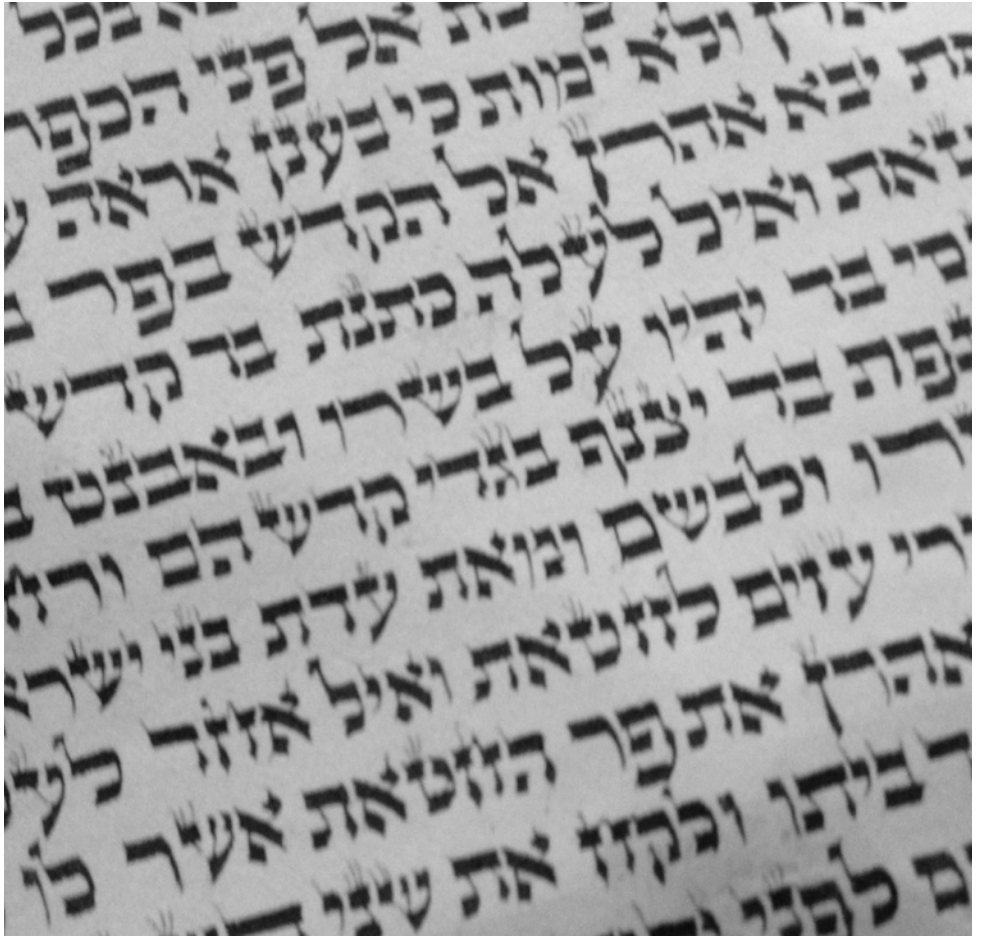 בכל
אל פני הכפר
ולא ימות כי בענן אראה
את יבא אהרן אל הקדש בפר ב
טאת ואיל לעלה כתנת בד קדש
סי בד יהיו על בשרו ובאבנט ב
נפת בד יצנף בגדי קדש הם ורח
רו ולבשם ומאת עדת בני ישרא
ירי עזים לחטאת ואיל אחד לעל
אהרן את פר החטאת אשר לו
ד ביתו ולקח את שני
ם לפני